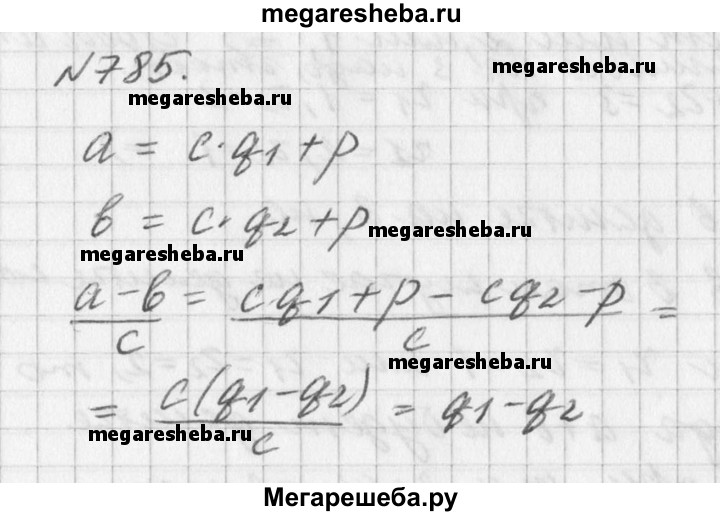 megaresheba.ru
N785.
megaresheba.ru
megaresheba.ru
a = c·q1+p
в = c·q2+p
megaresheba.ru
megaresheba.ru
(a-в)/c = (cq1+p-cq2-p)/c =
megaresheba.ru
= c(q1-q2)/c = q1-q2
megaresheba.ru
Мегарешеба.ру